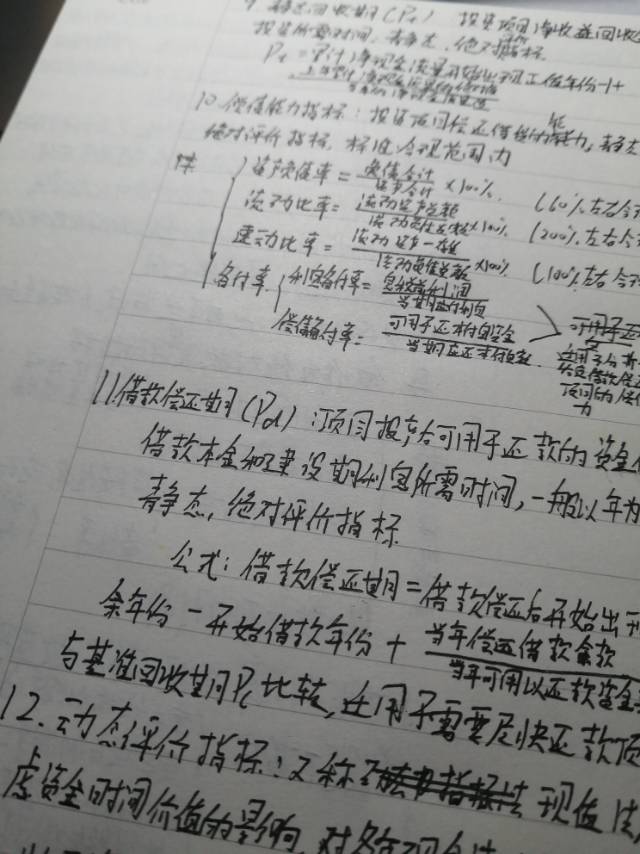 9. 静态回收期(Pt) 投资项目净收益回收
投资所需时间, 静态, 绝对指标.
Pt = 累计净现金流量开始出现正值年份-1+
10. 偿债能力指标: 投资项目偿还借款的能力, 静态
绝对评价指标, 标准合理范围内
资产负债率 = 负债合计/资产合计 ×100% (60%左右合
流动比率 = 流动资产总额/流动负债总额 ×100% (200%左右合
速动比率 = 流动资产-存货/流动负债总额 ×100% (100%左右合
备付率 利息备付率 = 息税前利润/当期应付利息
偿债备付率 = 可用于还本付息资金/当期应还本付息额
可用于还
适用于分析
项目的偿
力
11. 借款偿还期(Pd): 项目投产后可用于还款的资金
借款本金和建设期利息所需时间, 一般以年为
静态, 绝对评价指标
公式: 借款偿还期 = 借款偿还后开始出现
余年份 - 开始借款年份 + 当年偿还借款金额/当年可用以还款资金
与基准回收期Pc比较, 适用于需要尽快还款项
12. 动态评价指标: 又称 现值法
虑资金时间价值的影响, 对各年现金流